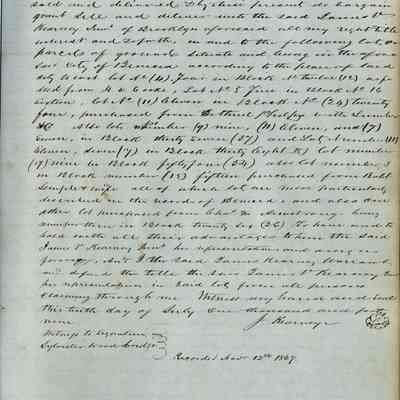 sold and delivered & by these present do bargain
grant sell and deliver unto the said James V
Kearney of Brooklyn aforesaid all my right title
interest and in and to the following lots or
parcels of ground situate and being in the afore
said City of Benecia according to the plan of said
City Lot No (4) four in Block No twelve (12)
from H. Lot No 5 five in Block No 16
sixteen, Lot No (11) Eleven in Block No (24) twenty
four, purchased from Bethuel Phelps with
Also lots number (9) nine, (11) Eleven, and (7)
seven, in Block thirty seven (37) and Lot number (11)
Eleven, seven (7) in Block thirty Eight Lot number
(9) nine in Block fifty four (54) also lot number 5
in Block number (15) fifteen purchased from Robt
Semple & wife all of which lots are more particularly
described in the record of Benecia, and also one
other lot purchased from Chas M Armstrong being
number three in Block twenty six (26) To have and to
hold with all their advantages to him the said
James V Kearney his representatives and assigns
forever, And I the said James Kearney Warrant
and defend the title to the said James V Kearney &
his representatives in said lots from all persons
claiming through me Witness my hand and seal
this tenth day of July One thousand and forty
nine J. Kearney
Witness to signature
Sylvester Woodbridge
Recorded Novr 12th 1849